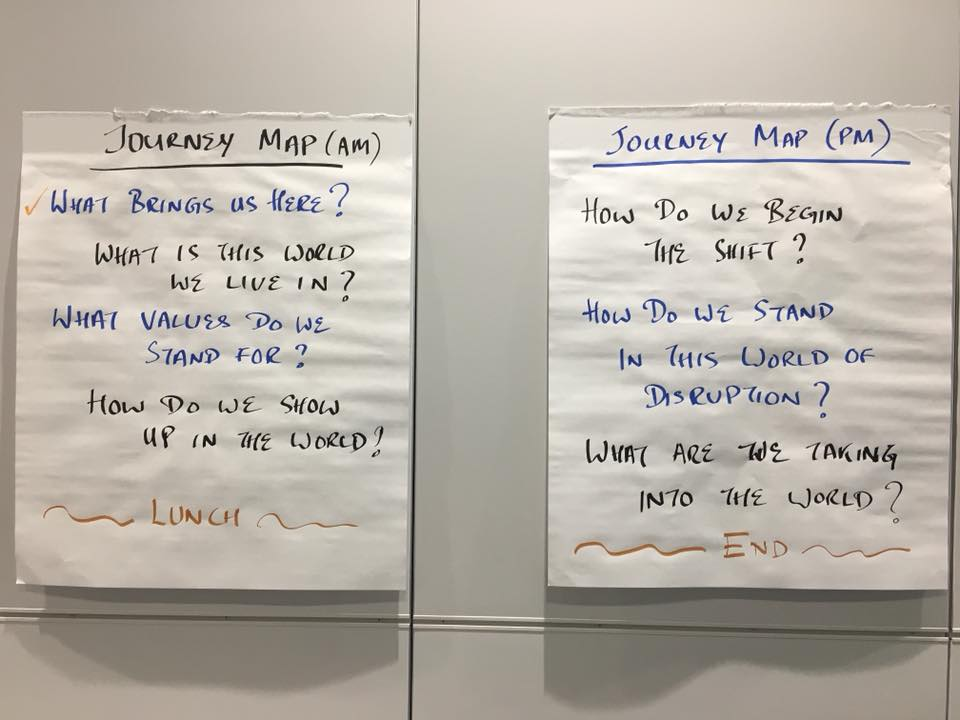 JOURNEY MAP (AM)
✓ WHAT BRINGS US HERE?
WHAT IS THIS WORLD
WE LIVE IN?
WHAT VALUES DO WE
STAND FOR?
HOW DO WE SHOW
UP IN THE WORLD?
LUNCH
JOURNEY MAP (PM)
HOW DO WE BEGIN
THE SHIFT?
HOW DO WE STAND
IN THIS WORLD OF
DISRUPTION?
WHAT ARE WE TAKING
INTO THE WORLD?
END